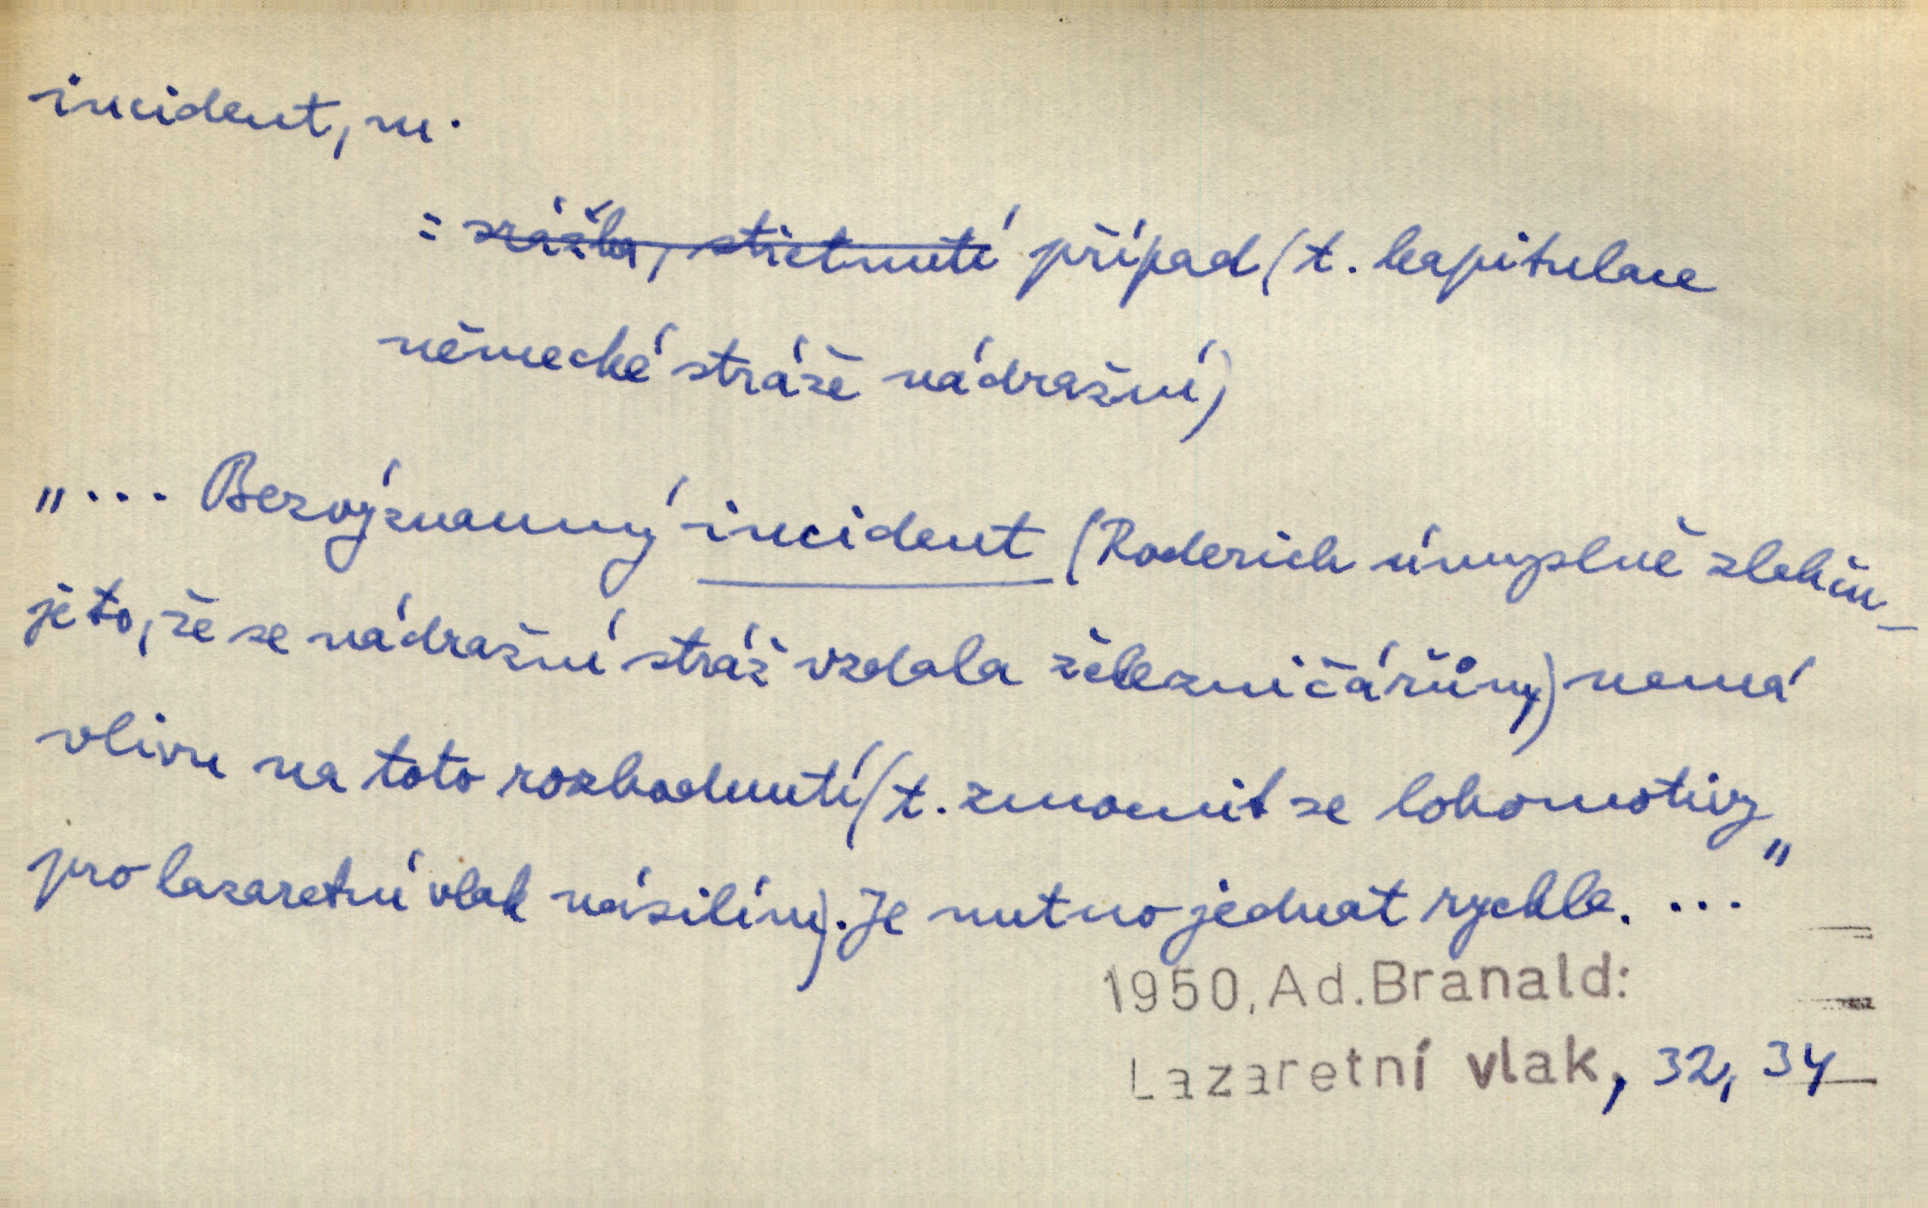 incident, m.
= srážka, střetnutí případ (t. kapitulace
německé stráže nádražní)
„... Bezvýznamný incident (Roderich úmyslně zlehču-
je to, že se nádražní stráž vzdala železničářům) nemá
vlivu na toto rozhodnutí (t. zmocnit se lokomotivy
pro lazaretní vlak násilím). Je nutno jednat rychle. ..."
1950, Ad. Branald:
Lazaretní vlak, 32, 34